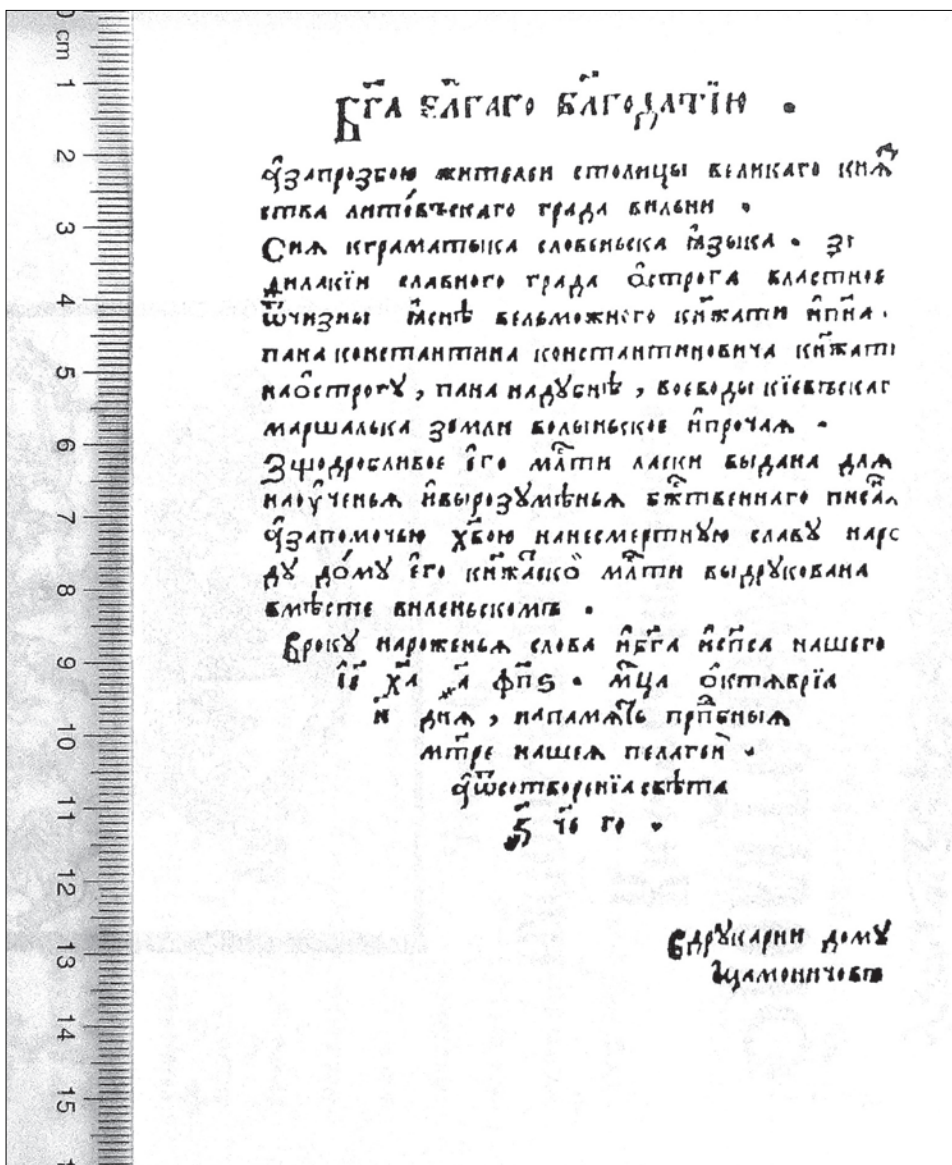 0 cm 1 2 3 4 5 6 7 8 9 10 11 12 13 14 15
Бг҃а бл҃гаго бл҃годатїю .
а҆ запрозбою жителеи столицы великаго кнѧ
ства лито́въскаго града вильни .
Сиѧ кграматыка словеньска ꙗ҆зыка . з
дилакїи славного града о҆строга властное
ѿчизны ꙗ҆сне вельможного кнж҃ати и҆пн҃а .
пана констанътина константиновича кнж҃ати
нао҆строгꙋ , пана надꙋбнѣ , воеводы кїевъскаг
маршалъка земли волыньское и҆прочаѧ .
Зщодробливое е҆го мл҃ти ласки выдана длѧ
наꙋ҆ченьѧ и҆вырозꙋмѣньѧ бж҃твеннаго писа
а҆ запомочью хб҃ою нанесмертнꙋю славꙋ наро
дꙋ до́мꙋ е҆го кнж҃аско мл҃ти выдрꙋкована
вмѣсте виленьскомъ .
Врокꙋ нароженьѧ слова и҆бг҃а и҆сп҃са нашего
і҆с҃ ха҃ ҂а҃ фп҃ѕ . мц҃а о҆ктѧврїа
и҃ днѧ , напамѧть прпⷣбныѧ
мт҃ре нашеѧ пелагеи .
а҆ ѿсотворенїа свѣта
҂з҃ ч҃е го .
Вдрꙋкарни домꙋ
мамоничовъ